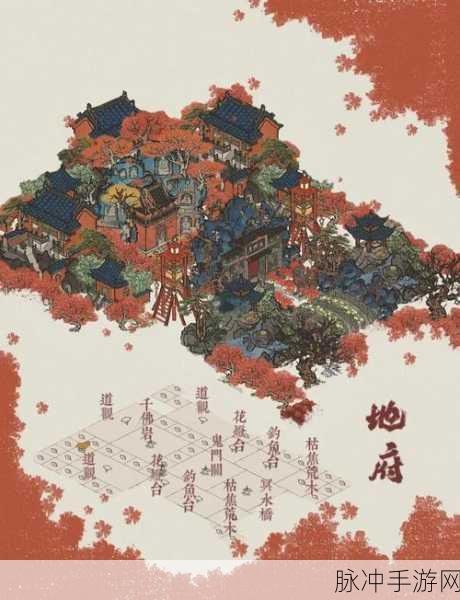 道觀
千佛岩
道觀
釣魚台
枯焦荒木
道觀
釣魚台
鬼門關
枯焦荒木
冥水橋
地府
脉冲手游网